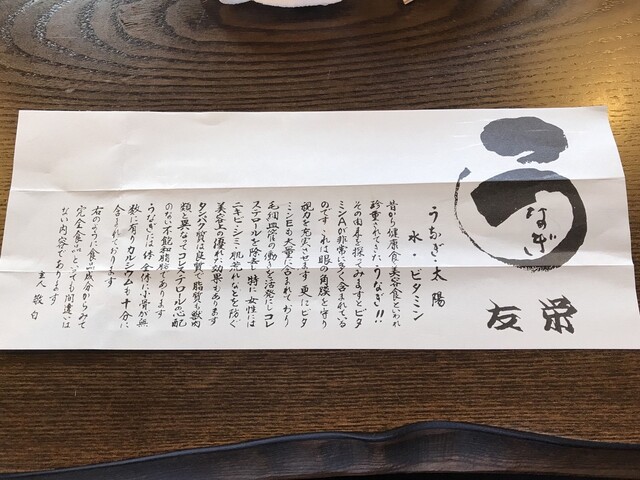 うなぎ
友栄
うなぎ・太陽
水・ビタミン
昔から健康食、美容食といわれ
珍重されてきた、うなぎ!!
その内容を探ってみますとビタ
ミンAが非常に多く含まれている
のです これは眼の角膜を守り
視力を充実させます 更にビタ
ミンEも大量に含まれており
毛細血管の働きを活発にしコレ
ステロールを除去し特に女性には
ニキビ・シミ・肌荒れなどを防ぐ
美容上の優れた効果もあります
タンパク質は良質で脂質も獣肉
類と異なってコレステロールの心配
のない不飽和脂肪であります
うなぎには体全体に小骨が無
数に有りカルシウムも十分に
含まれております
右のように食品成分からみて
完全食品といっても間違いは
ない内容であります
主人 敬白